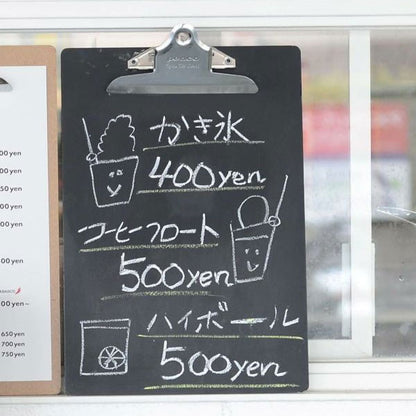 かき氷
400yen
コーヒーフロート
500yen
ハイボール
500yen
00 yen
00 yen
50 yen
00 yen
00 yen
00 yen
00 yen~
650 yen
700 yen
750 yen